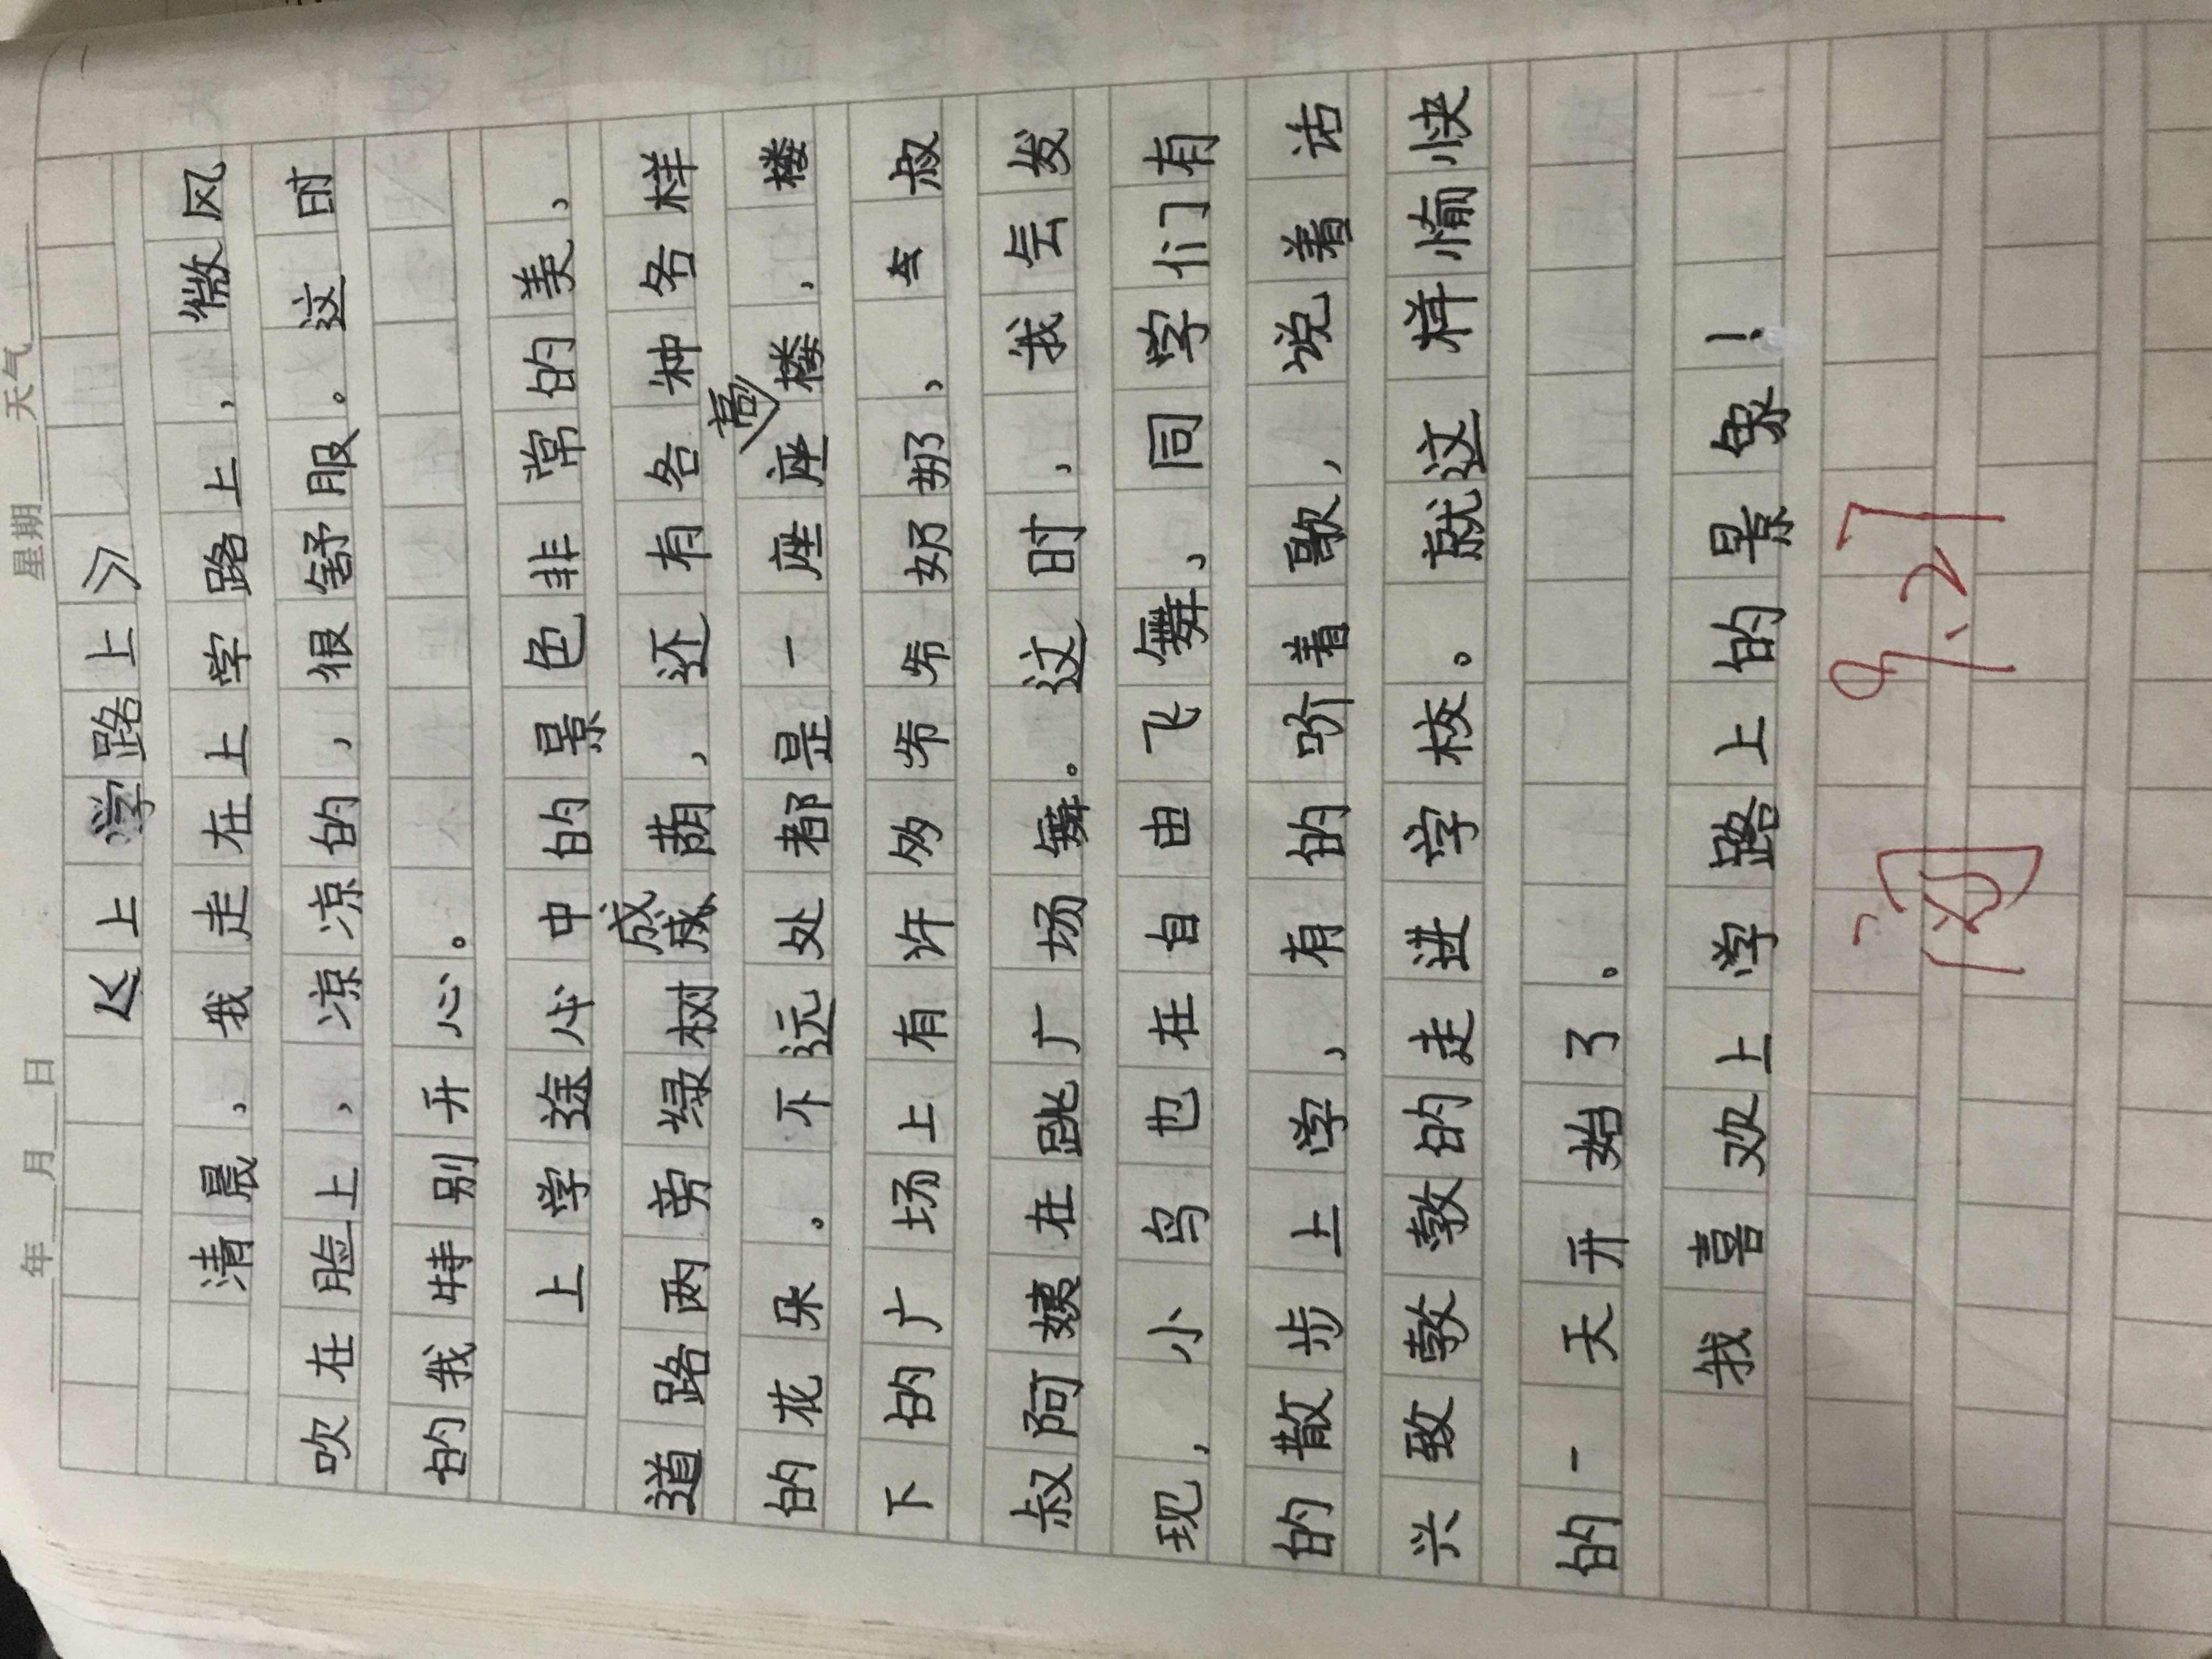 年 月 日 星期 天气
《上学路上》
清晨，我走在上学路上，微风
吹在脸上，凉凉的，很舒服。这时
的我特别开心。
上学途中的景色非常的美，
道路两旁绿树成荫，还有各种各样
的花朵。不远处都是一座座高楼，楼
下的广场上有许多爷爷奶奶、叔
叔阿姨在跳广场舞。这时，我会发
现，小鸟也在自由飞舞、同学们有
的散步上学，有的哼着歌，说着话
兴致勃勃的走进学校。就这样愉快
的一天开始了。
我喜欢上学路上的景象！
阅 9.27